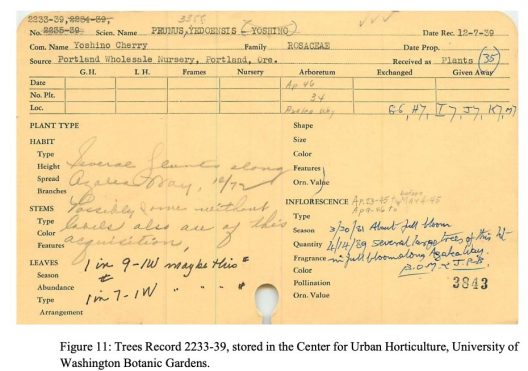 2233-39, 2234-39,
No. 2235-39 Scien. Name PRUNUS, YEDOENSIS (YOSHINO)
Com. Name Yoshino Cherry Family ROSACEAE Date Rec. 12-7-39
Date Prop.
Source Portland Wholesale Nursery, Portland, Ore. Received as Plants (35)
G. H. L H. Frames Nursery Arboretum Exchanged Given Away
Date Ap 46
No. Plt. 34
Loc. Way G6, H7, I7, J7, K7, M7
PLANT TYPE Shape
HABIT Size
Type Color
Height Several plants along Features
Spread Azalea Way, 10/72 Orn. Value
Branches Possibly some without
STEMS labels also are of this INFLORESCENCE
Type acquisition,
Color Season 3/20/81 About full bloom
Features Quantity 4/14/89 several large trees of this
LEAVES 1 in 9-1W maybe this # Fragrance in full bloom along Azalea Way.
Season Color B.O.M. & J.P.B.
Abundance Pollination 3843
Type 1 in 7-1W " " " " Orn. Value
Arrangement
Figure 11: Trees Record 2233-39, stored in the Center for Urban Horticulture, University of
Washington Botanic Gardens.